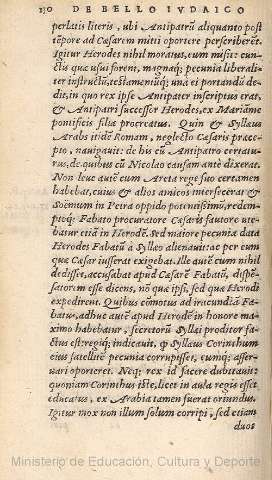 130 DE BELLO IVDAICO
perlatis literis, ubi Antipatrũ aliquanto post
tẽpore ad Cæsarem mitti oportere perscriberẽt.
Igitur Herodes nihil moratus, eum misit: cun-
ctis quæ usui forent, magnaq; pecunia liberali-
ter instructũ, testamentũq; unà ei portandũ de-
dit, in quo rex ipse Antipater inscriptus erat,
& Antipatri successor Herodes, ex Mariãme
pontificis filia procreatus. Quin & Syllæus
Arabs itidẽ Romam, neglecto Cæsaris præce-
pto, nauigauit: de his cũ Antipatro certatu-
rus, de quibus cũ Nicolao causam antè dixerat.
Non leue autẽ cum Areta rege suo certamen
habebat, cuius & alios amicos interfecerat &
Soëmum in Petra oppido potentissimũ, redem-
ptoq; Fabato procuratore Cæsaris fautore ute-
batur etiã in Herodẽ. Sed maiore pecunia data
Herodes Fabatũ à Syllæo alienauit: ac per eum
quæ Cæsar iusserat exigebat. Ille autẽ cum nihil
dedisset, accusabat apud Cæsarẽ Fabatũ, dispẽ-
satorem esse dicens, nõ quæ ipsi, sed quæ Herodi
expedirent. Quibus cõmotus ad iracundiã Faba-
tus, adhuc autẽ apud Herodẽ in honore ma-
ximo habebatur, secretorũ Syllæi proditor fa-
ctus est: regiq; indicauit, ꝙ Syllæus Corinthum
eius satellitẽ pecunia corrupisset, eumq; asser-
uari oporteret. Neq; rex id facere dubitauit:
quoniam Corinthus iste, licet in aula regis esset
educatus, ex Arabia tamen fuerat oriundus.
Igitur mox non illum solum corripi, sed etiam
duos
Ministerio de Educación, Cultura y Deporte